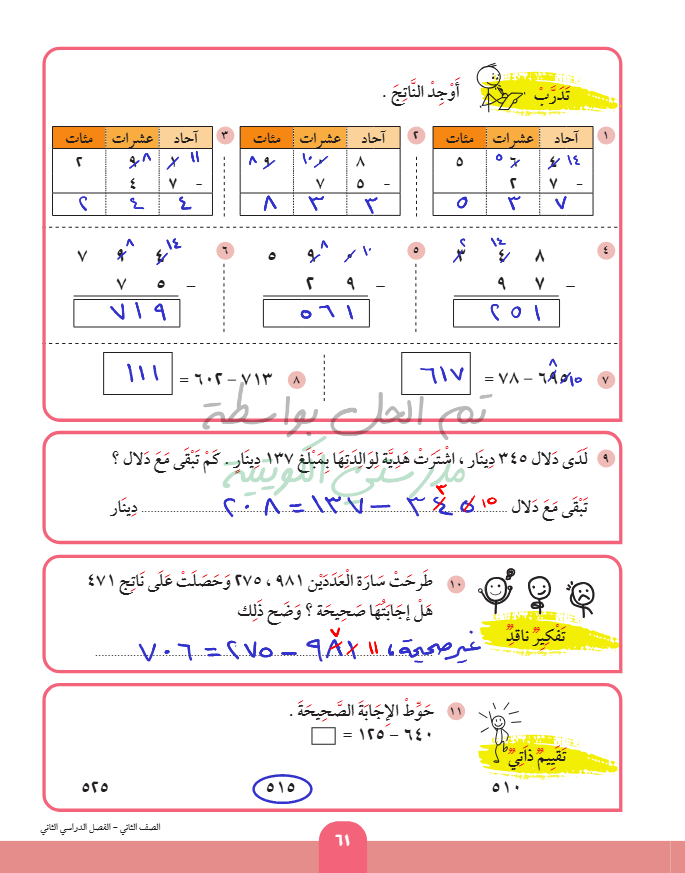 تَدَرَّبْ أَوْجِدْ النَّاتِجَ .
١ ٢ ٣
آحاد عشرات مئات آحاد عشرات مئات آحاد عشرات مئات
١٤ ٤ ٥ ٦ ٥ ٨ ١٠ ٠ ٨ ٩ ١١ ١ ٨ ٩ ٢
- ٧ ٢ - ٥ ٧ - ٧ ٤
٧ ٣ ٥ ٣ ٣ ٨ ٤ ٤ ٢
٤ ٥ ٦
٢ ١٤ ٨ ١٠ ٨ ١٤
٣ ٤ ٨ ٥ ٩ ٠ ٧ ٩ ٤
٩ ٧ - ٢ ٩ - ٧ ٥ -
٢٥١ ٥٦١ ٧١٩
٧ ٦٩٥ – ٧٨ = ٦١٧ ٨ ٧١٣ – ٦٠٢ = ١١١
٨ ١٥
تم الحل بواسطة
مدرستي الكويتية
٩ لَدَى دَلال ٣٤٥ دِينَار ، اشْتَرَتْ هَدِيَّة لِوَالِدَتِهَا بِمَبْلَغ ١٣٧ دِينَارٍ . كَمْ تَبْقَى مَعَ دَلال ؟
٣ ١٥
تَبْقَى مَعَ دَلال ٣٤٥ – ١٣٧ = ٢٠٨ دِينَار
١٠ طَرَحَتْ سَارَة الْعَدَدَيْن ٩٨١ ، ٢٧٥ وَحَصَلَتْ عَلَى نَاتِج ٤٧١
هَلْ إِجَابَتُهَا صَحِيحَة ؟ وَضِّح ذَلِك
تَفْكِيرٌ نَاقِدٌ
٧ ١١
غير صحيحة ، ٩٨١ – ٢٧٥ = ٧٠٦
١١ حَوِّطْ الإِجَابَةَ الصَّحِيحَةَ .
٦٤٠ – ١٢٥ =
تَقْيِيمٌ ذَاتِيٌّ
٥١٠ ٥١٥ ٥٢٥
الصف الثاني – الفصل الدراسي الثاني
٦١